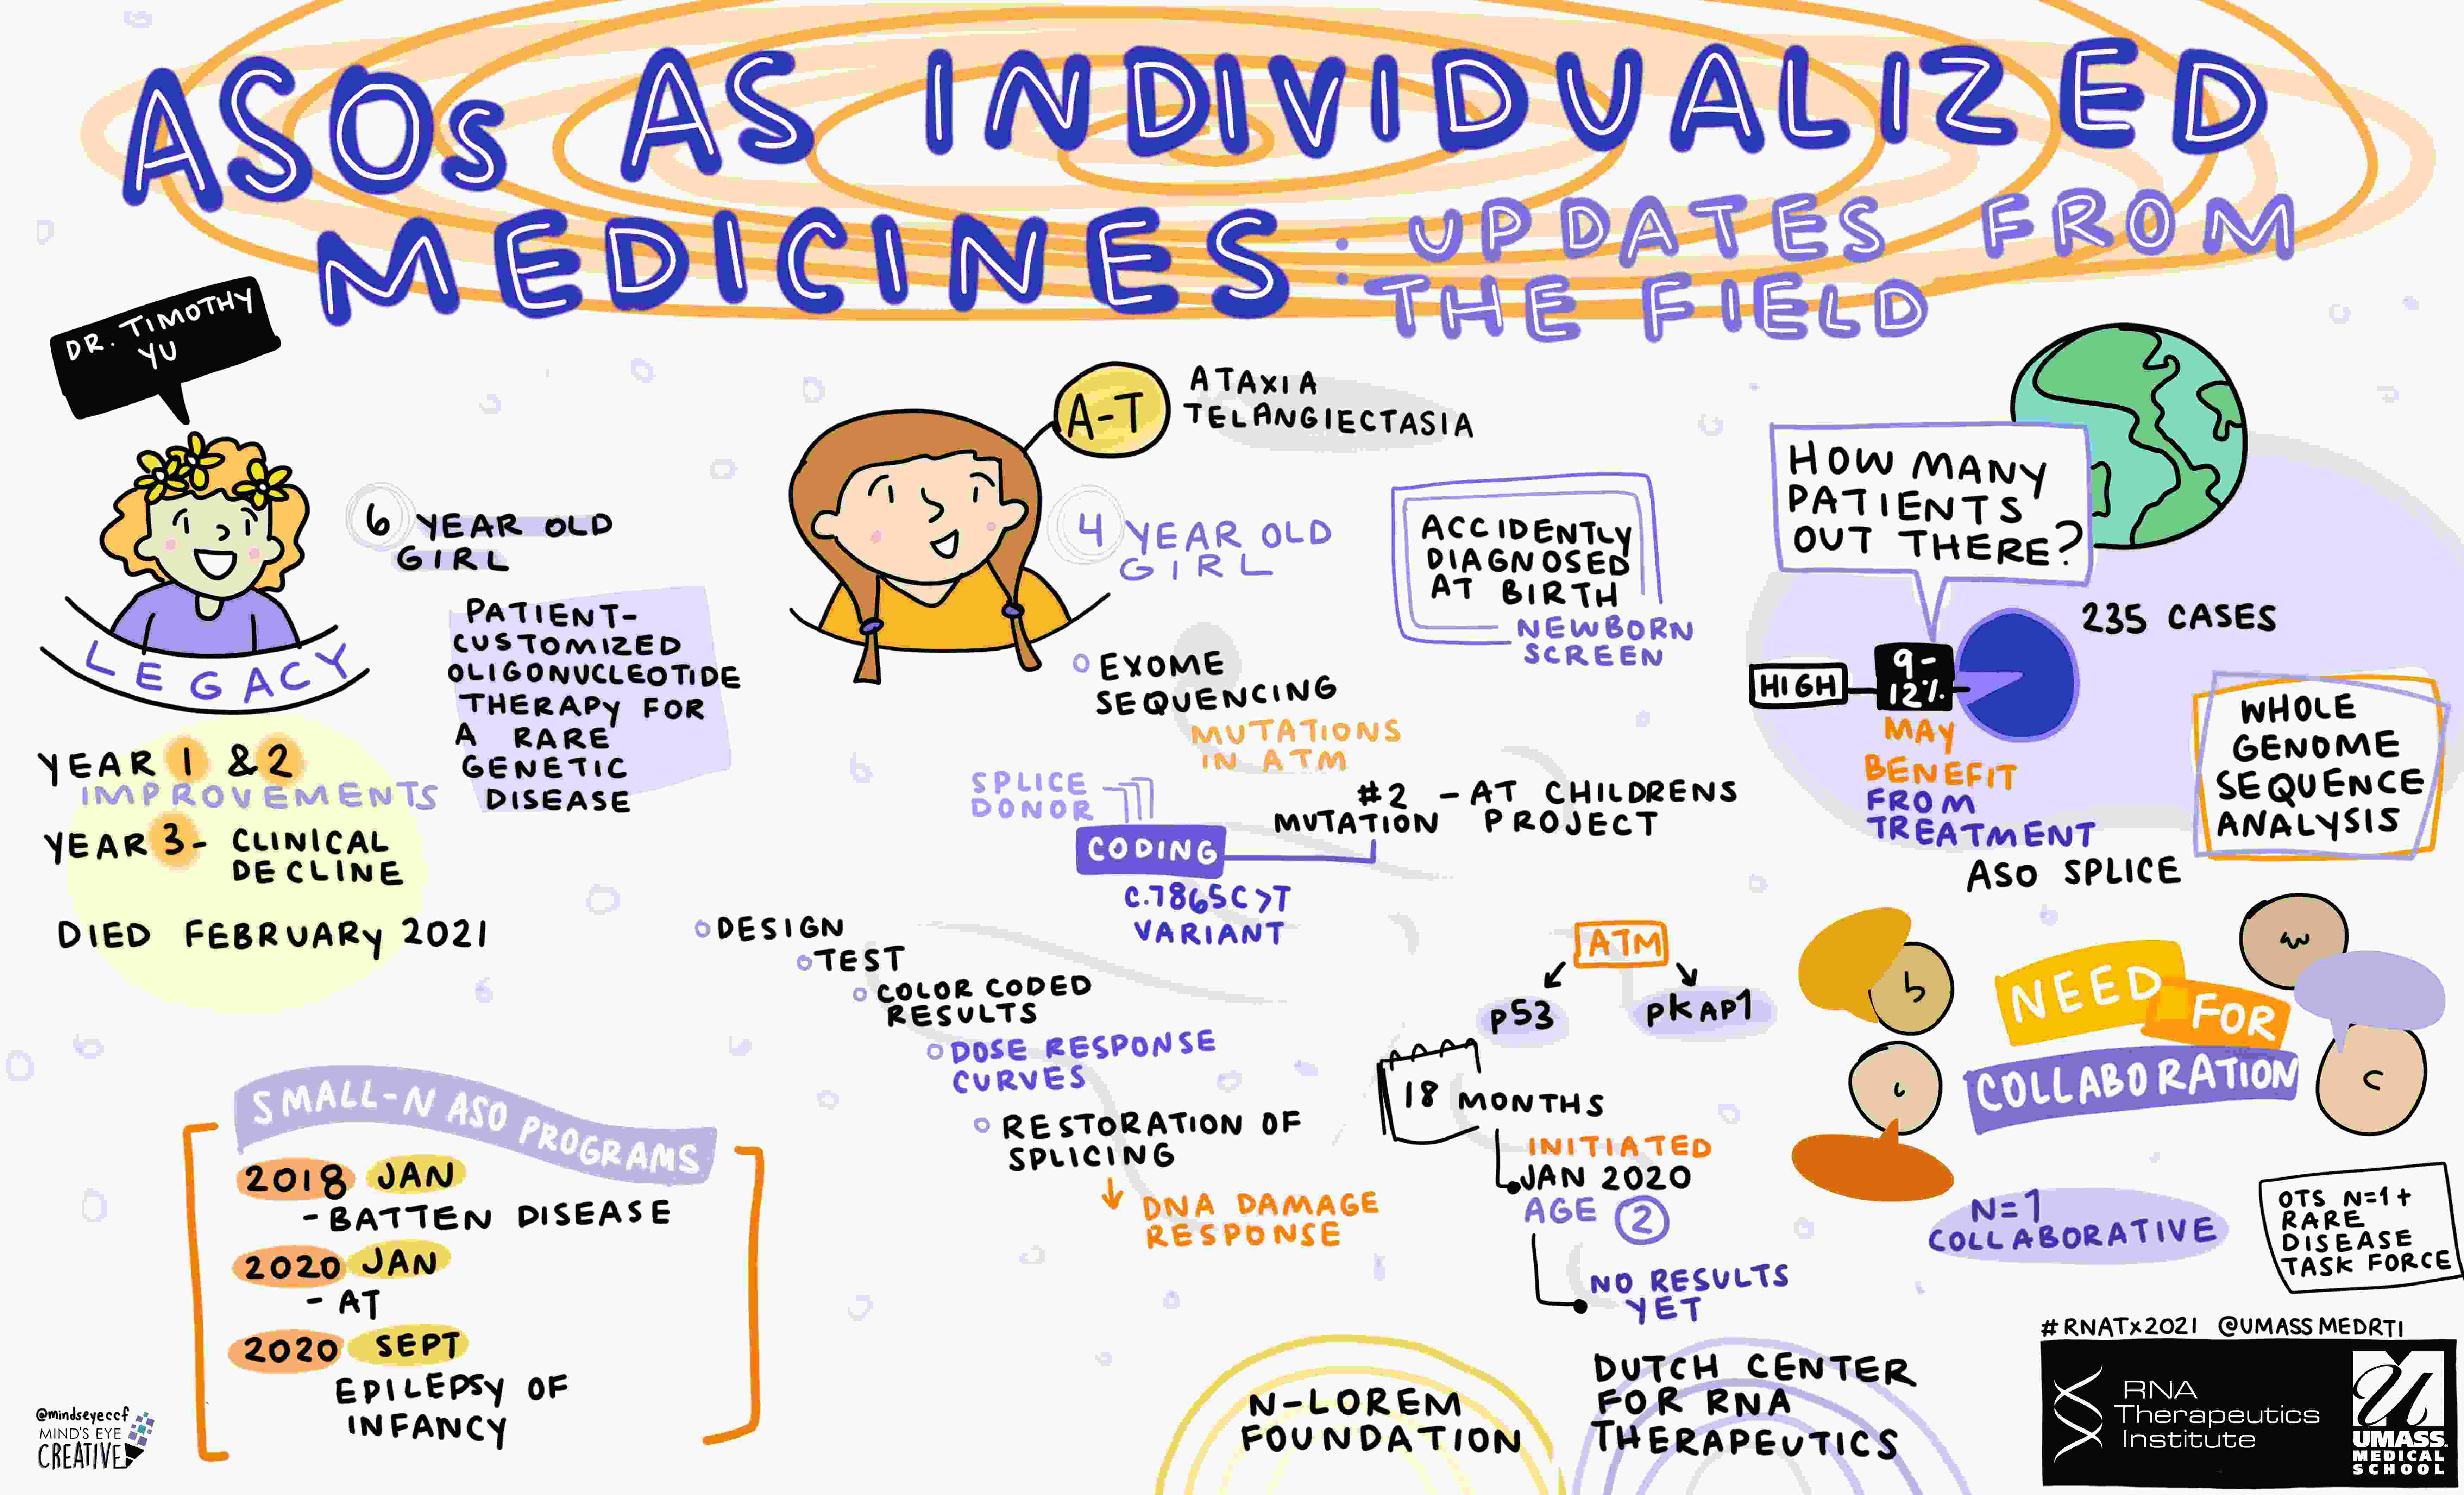 ASOs AS INDIVIDUALIZED
MEDICINES: UPDATES FROM
THE FIELD
DR. TIMOTHY
YU
6 YEAR OLD
GIRL
LEGACY
PATIENT-
CUSTOMIZED
OLIGONUCLEOTIDE
THERAPY FOR
A RARE
GENETIC
DISEASE
YEAR 1 & 2
IMPROVEMENTS
YEAR 3- CLINICAL
DECLINE
DIED FEBRUARY 2021
SMALL-N ASO PROGRAMS
2018 JAN
- BATTEN DISEASE
2020 JAN
- AT
2020 SEPT
EPILEPSY OF
INFANCY
@mindseyeccf
MIND'S EYE
CREATIVE
A-T
ATAXIA
TELANGIECTASIA
4 YEAR OLD
GIRL
ACCIDENTLY
DIAGNOSED
AT BIRTH
NEWBORN
SCREEN
EXOME
SEQUENCING
MUTATIONS
IN ATM
SPLICE
DONOR
CODING
#2 - AT CHILDRENS
MUTATION PROJECT
C.7865C>T
VARIANT
DESIGN
TEST
COLOR CODED
RESULTS
DOSE RESPONSE
CURVES
RESTORATION OF
SPLICING
DNA DAMAGE
RESPONSE
ATM
P53
PKAP1
18 MONTHS
INITIATED
JAN 2020
AGE 2
NO RESULTS
YET
N-LOREM
FOUNDATION
DUTCH CENTER
FOR RNA
THERAPEUTICS
HOW MANY
PATIENTS
OUT THERE?
235 CASES
HIGH
9-
12%
MAY
BENEFIT
FROM
TREATMENT
ASO SPLICE
WHOLE
GENOME
SEQUENCE
ANALYSIS
NEED FOR
COLLABORATION
N=1
COLLABORATIVE
OTS N=1+
RARE
DISEASE
TASK FORCE
#RNATx2021 @UMASSMEDRTI
RNA
Therapeutics
Institute
UMASS
MEDICAL
SCHOOL